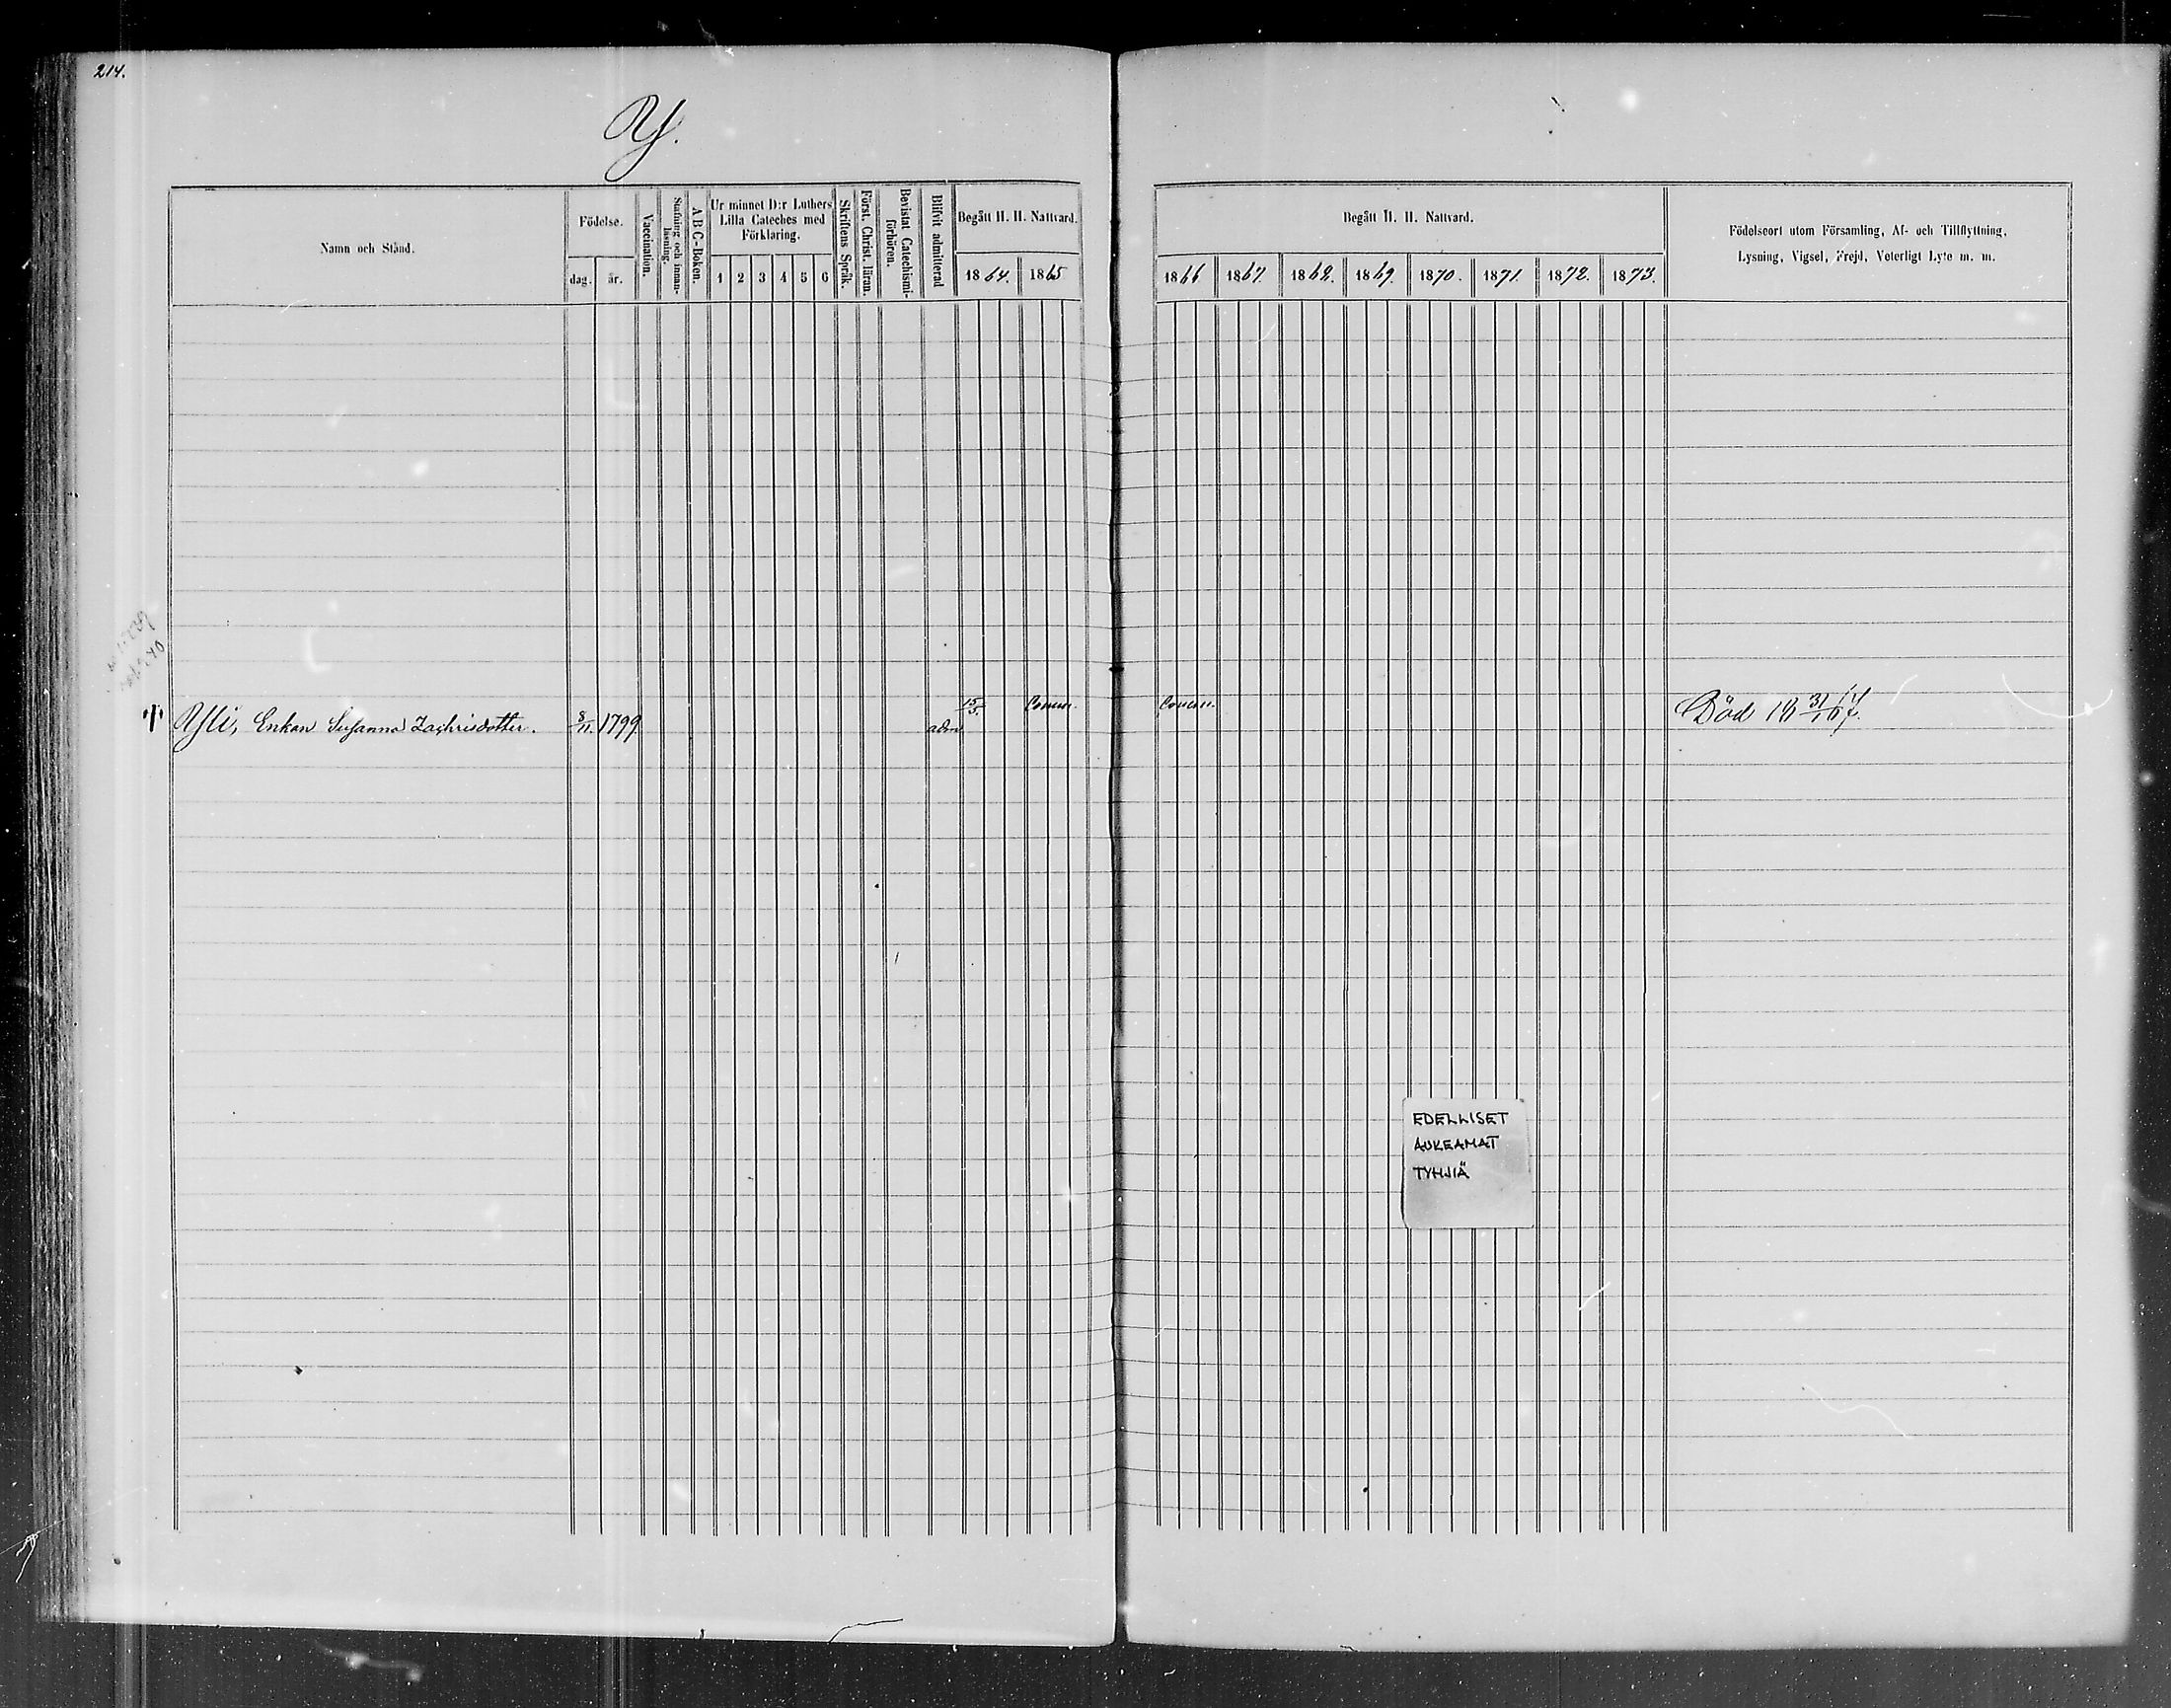 214.
Y.
Namn och Stånd.
Födelse.
dag.
år.
Vaccination.
Stafning och innanläsning.
A B C-Boken.
Ur minnet D:r Luthers
Lilla Cateches med
Förklaring.
1 2 3 4 5 6
Skriftens Språk.
Först. Christ. läran.
Bevistat Catechismi-
förhören.
Blifvit admitterad
Begått H. H. Nattvard.
1864. 1865
Begått H. H. Nattvard.
1866 1867. 1868. 1869. 1870. 1871. 1872. 1873.
Födelseort utom Församling, Af- och Tillflyttning,
Lysning, Vigsel, Frejd, Veterligt Lyte m. m.
Yli, Enkan Susanna Zachrisdotter. 8/11. 1799. adm 15/5. Comm. Comm. Död 18 31/1 67.
EDELLISET
AUKEAMAT
TYHJIÄ